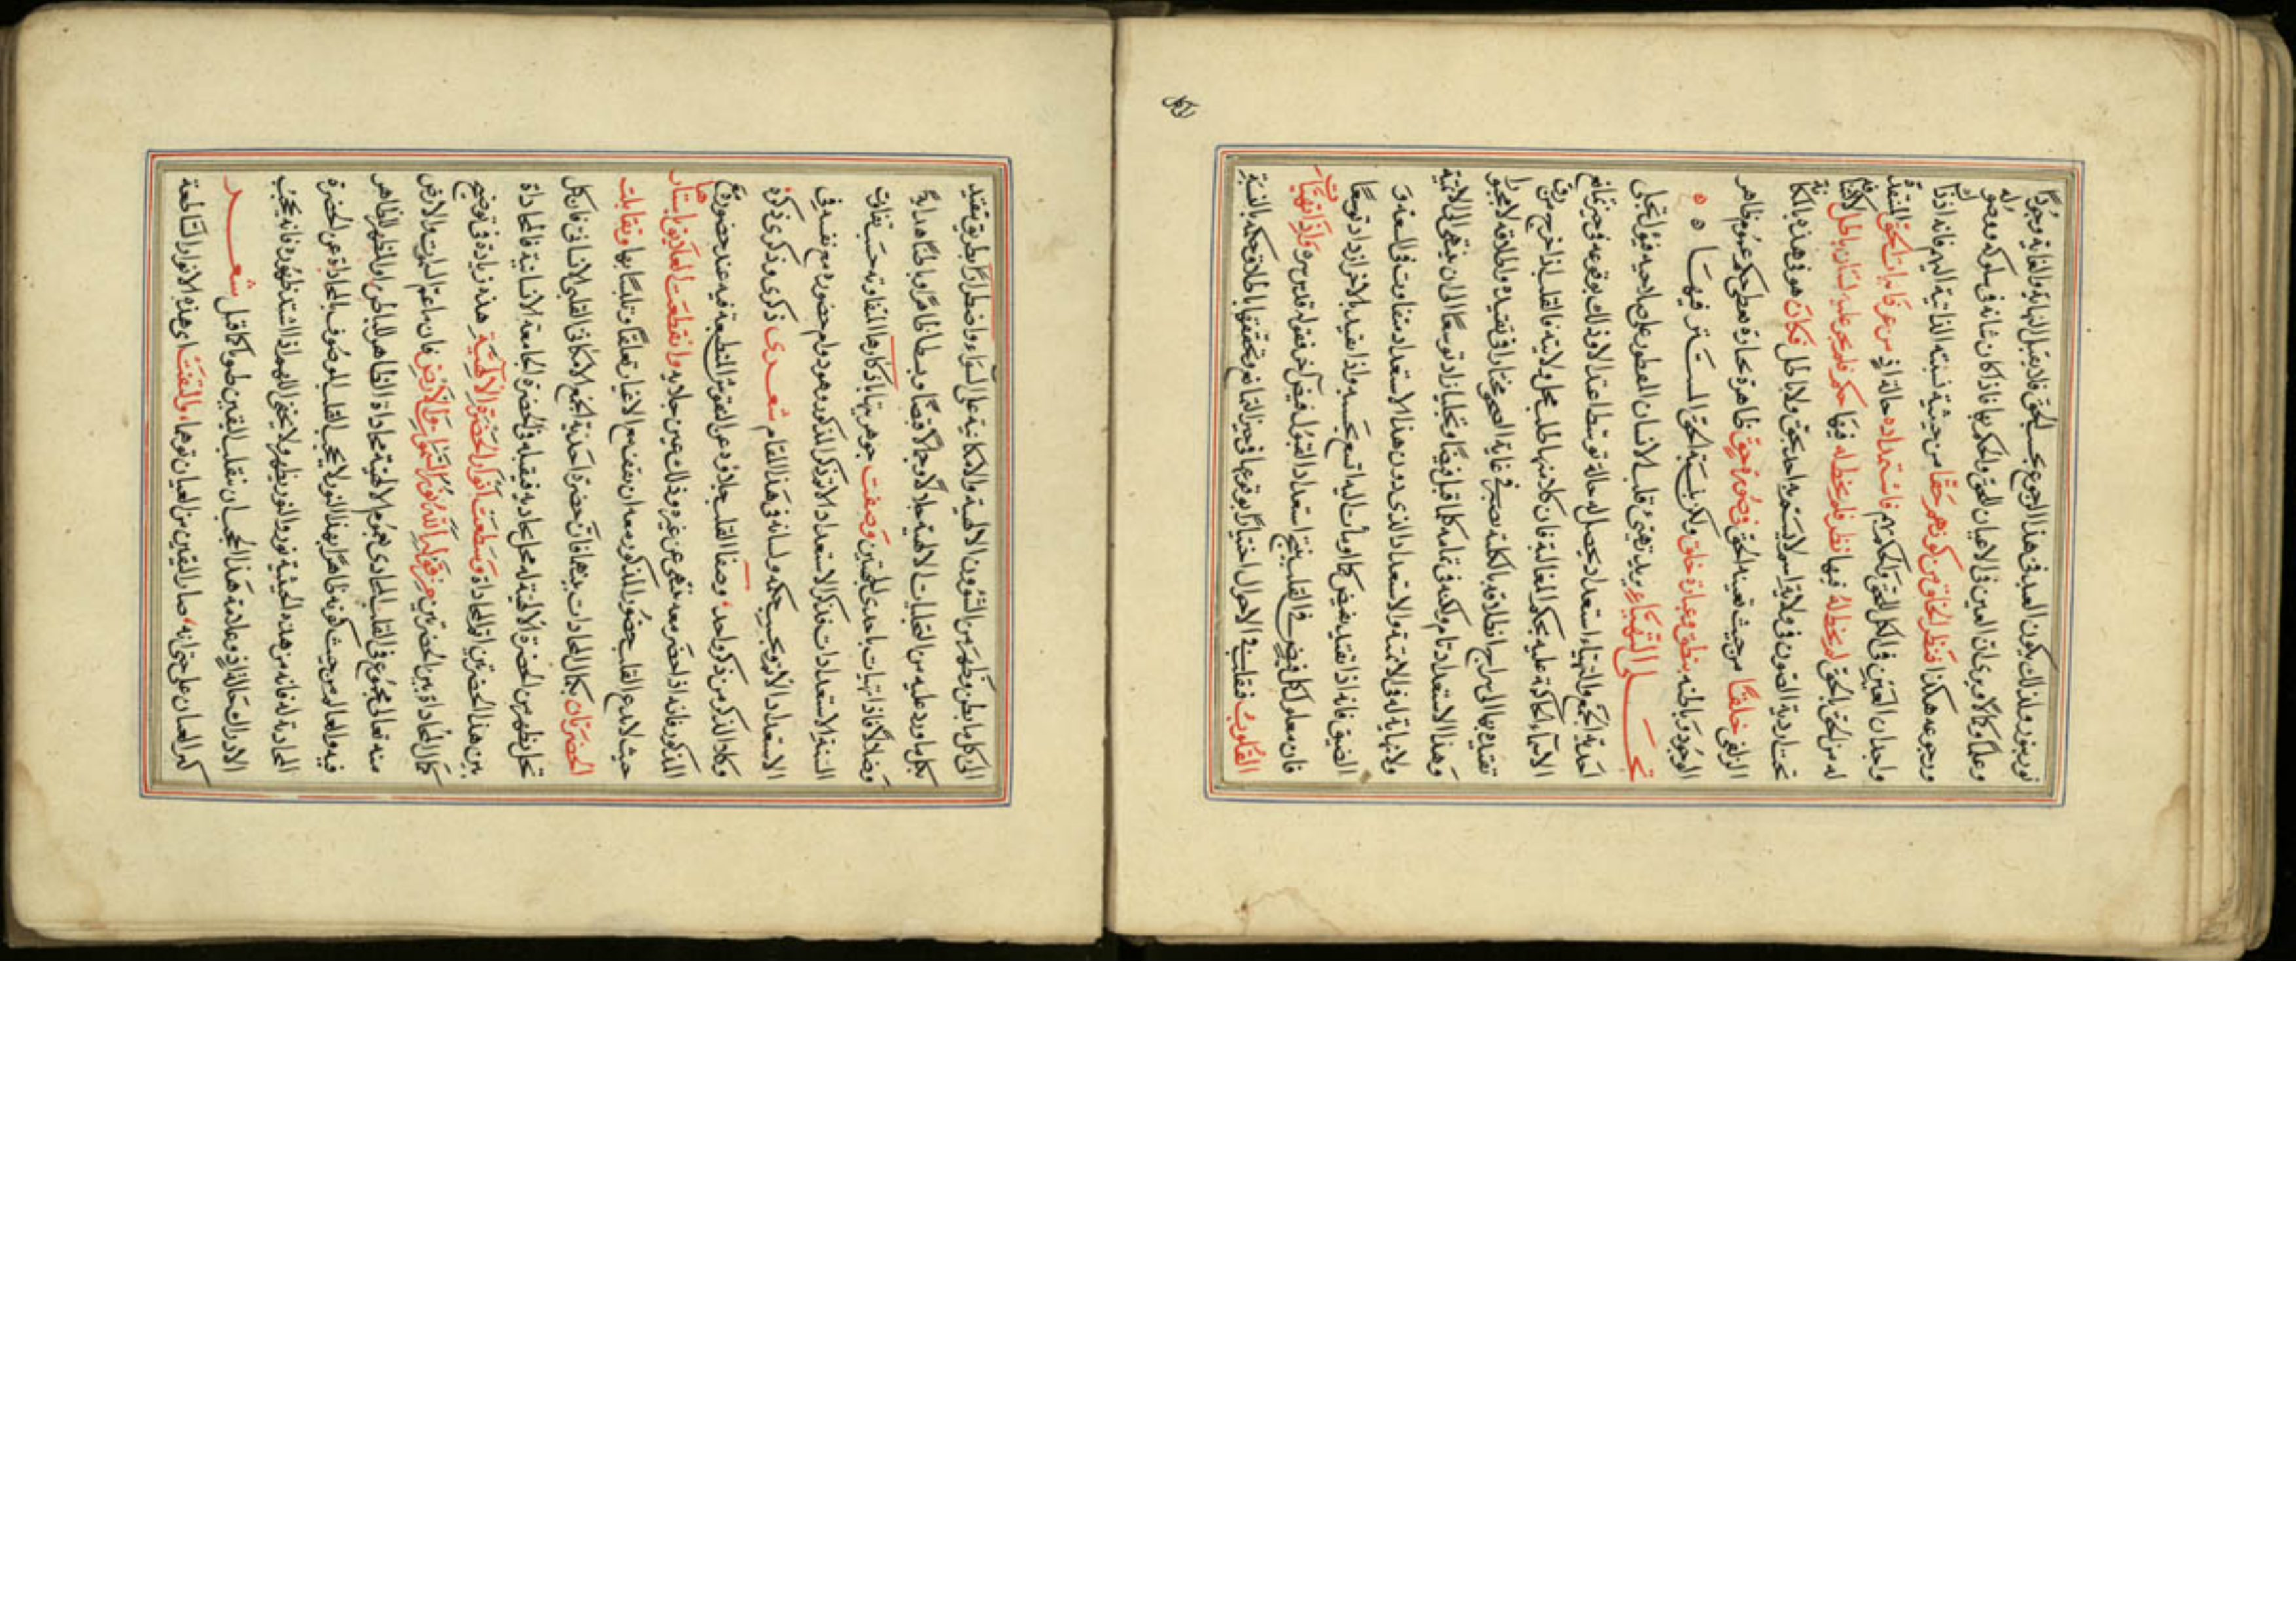 نور بنور ولذلك يكون العبد في هذا الرجوع بحسب الحق فلا يقبل النهاية والغاية وجودا
وعلما وكما لا يرى كان العين في الاعيان للحق والحكم بها فاذا كان شانه في سلوكه ووصوله
ورجوعه هكذا فنظر الخلق من كونهم حقا من حيثية نسبته الذاتية اليهم فانه اذ ذاك
واجدان العين في الكل للحق والحكم لهم فاستمداده حالة اذ من عرفاء مراتب الحق المتعددة
له من الحق الحق لم يحط له فيها نظر فلم يحط له فيها حكم فلم يجر عليه لسان باطل لا
تحت اردية الصون في ولاية اسم لا يتسم به احد بحق ولا باطل فكان هو في هذه المكانة
الزلفى خلقا من حيث تعينه الحق فصرف حق ظاهره بحارة معطى حكم عموم ظاهر
الوجود وباطنه ينطق وعبارة خلق ولكن بنسبة الحق المستتر فيها ه ه
تجلى التهياء يريد تهيئ قلب الانسان المفطور على صلاحية قبول التجلي
احدية الجمع والتهياء استعداد يحصل له حالة توسطه اعتدالا وذلك بوقوعه في حيز تمانع
الاسماء الحاكمة عليه بحكم المغالبة فان كلا منها طلب محل ولايته فالقلب اذا خرج من رق
تقيده بها الى سراح انطلاقه بالكلية يصير في غاية الصحو مختارا في تقيده واطلاقه لا مجبورا
وهذا الاستعداد تام ولكنه في تمامه كلما قبل فيضا وتجليا زاد توسعا الى ان ينتهي الى لا نهاية
ولا نهاية له في الاتمية والاستعداد الذي دون هذا الاستعداد متفاوت في السعة و
الضيق فانه اذا تقيد بفيض كما اومات اليه اتسع بحسبه واذا تقيد بالاخر ازداد توسعا
فان معلوم كل فيض في القلب ينتج استعداد القبول فيض آخر فقوله قدس سره اذا تهيات
القلوب فقلبت في الاحوال اختيارا بوقوعها في حيز التمانع وتحققها باطلاق حكمه بالنسبة
الى كل ما بطن وظهر من الشؤون الالهية والامكانية على السواء او اضطرارا بطريق تقيد
بكل ما ورد عليه من التجليات الالهية جلالا وجمالا قبضا وبسطا ظاهرا وباطنا هداية
وضلالا فانها تهيات باحدى الجهتين وصفت جوهريتها باذكارها المتفاوتة حسب تفاوت
السنة الاستعدادات فذكر الاستعداد الاتم ذكر المذكور وهو دوام حضوره مع نفسه في
الاستعداد الاتم بحسب حكمه ولسانه في هذا المقام شعر ذكرى وذكرى ذكره
وكلا الذكر من ذكر واحد وصفاء القلب جلاؤه عن النقوش المنطبعة فيه عند حضوره مع
المذكور فانه اذا حضر معه فنى عن غيره وذلك عين جلائه وانقطعت العلائق باستارها
حيث لا يدع القلب حضور المذكور معه ان يقف مع الاغيار تعلقا وتلبسا بها وتقابلت
الحضرتان بكمال المحاذات بينهما فان حضرة احدية الجمع الامكاني القلبي الانساني فان كل
تجل يظهر من الحضرة الالهية له محل يحاذيه فيقبله في الحضرة الجامعة الانسانية فالمحاذاة
بين هذا الحضرتين اتم المحاذاة وسطعت انوار الحضرة الالهية هذه زيادة في توضيح
كمال المحاذاة بين الحضرتين من قوله الله نور السموات والارض فان ما عم السموات والارض
منه تعالى مجموع في القلب المحاذي بعموم الاهلية محاذاة الظاهر للباطن او المظهر للظاهر
فيه والعالم من حيث كونه ظاهرا بهذا النور لا يحجب القلب الموصوف بالمحاذاة عن الحضرة
المحاذية له فانه من هذه الحيثية نور والنور يظهر ولا يخفى اللهم اذا اشتد ظهوره فانه يحجب
الادراك حالتئذ وعلامة هذا الحجاب ان ينقلب اليقين ظنونا كما قيل شعر
كبر العيان على حتى انه صار اليقين من العيان توهما والتفت اي هذه الانوار الساطعة